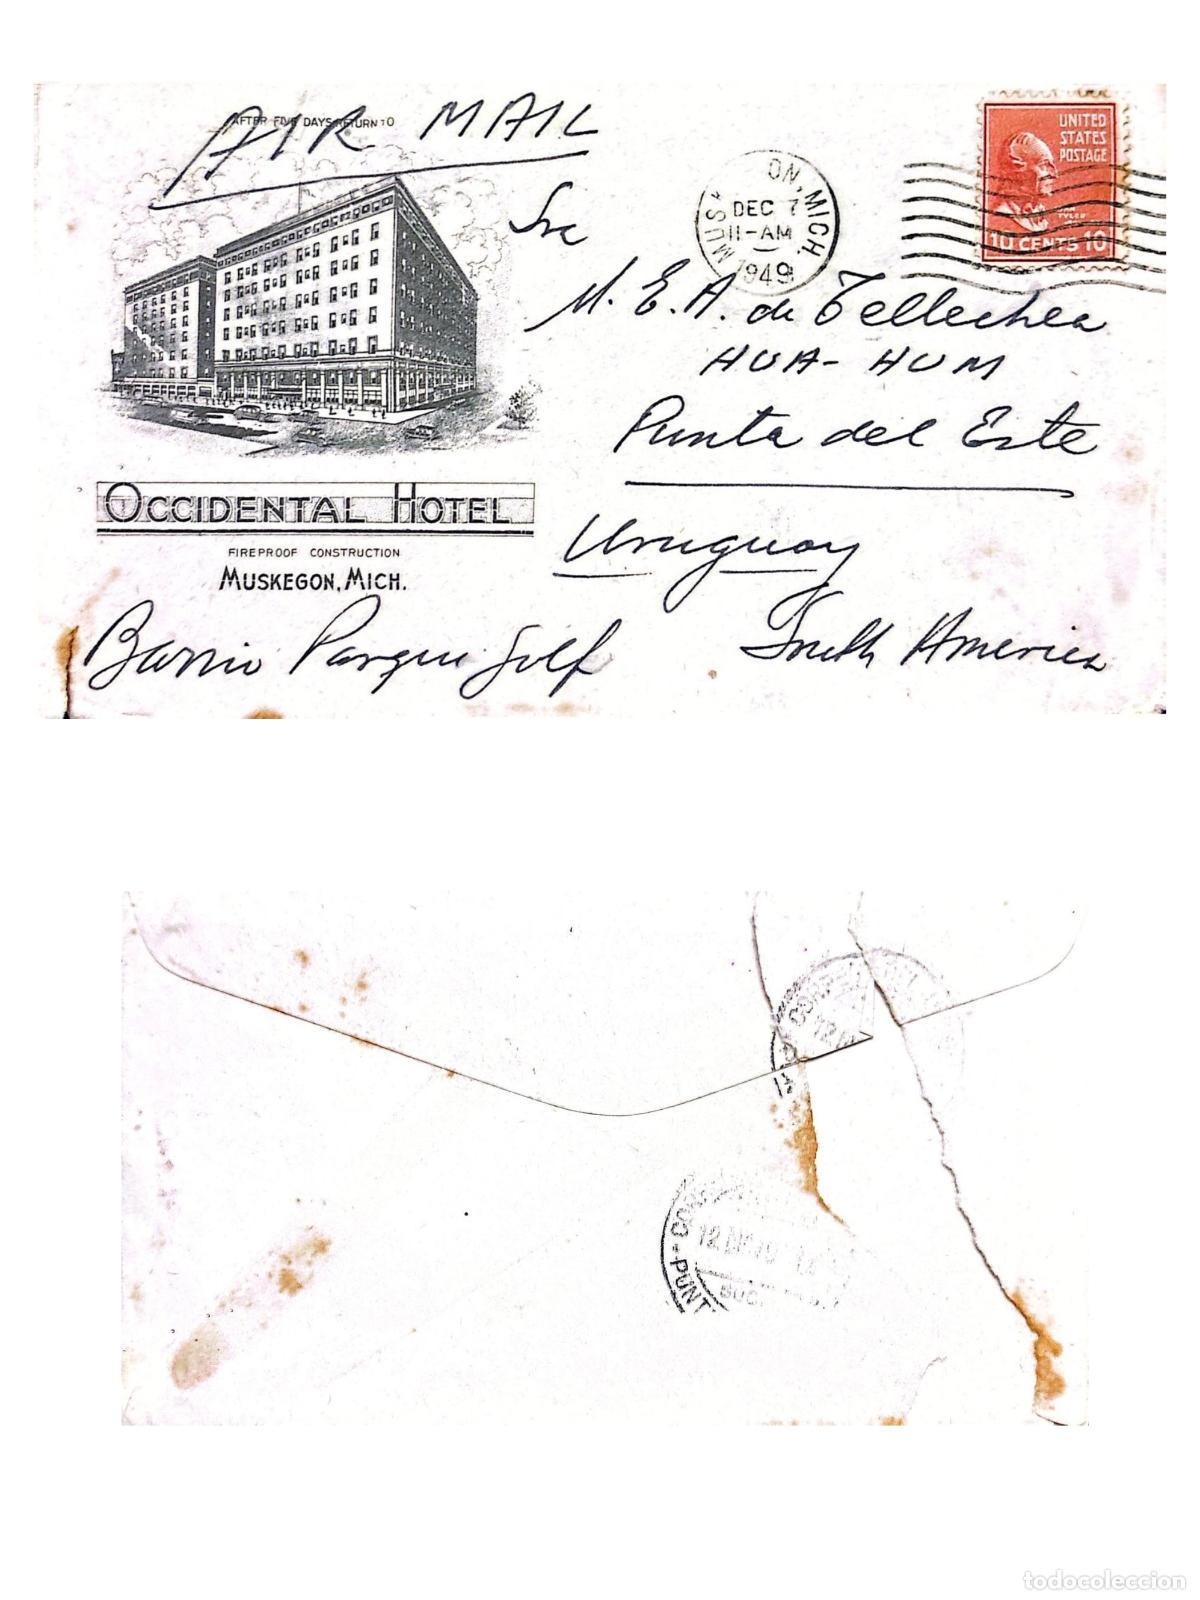 AFTER FIVE DAYS RETURN TO
AIR MAIL
UNITED
STATES
POSTAGE
TYLER
10 CENTS 10
MUS ON, MICH.
DEC 7
11-AM
1949
Sra
M. E. A. de Tellechea
HUA-HUM
Punta del Este
Uruguay
South America
OCCIDENTAL HOTEL
FIREPROOF CONSTRUCTION
MUSKEGON, MICH.
Barrio Parque Golf
CORR
12
12
PUNT
SUC.
todocoleccion